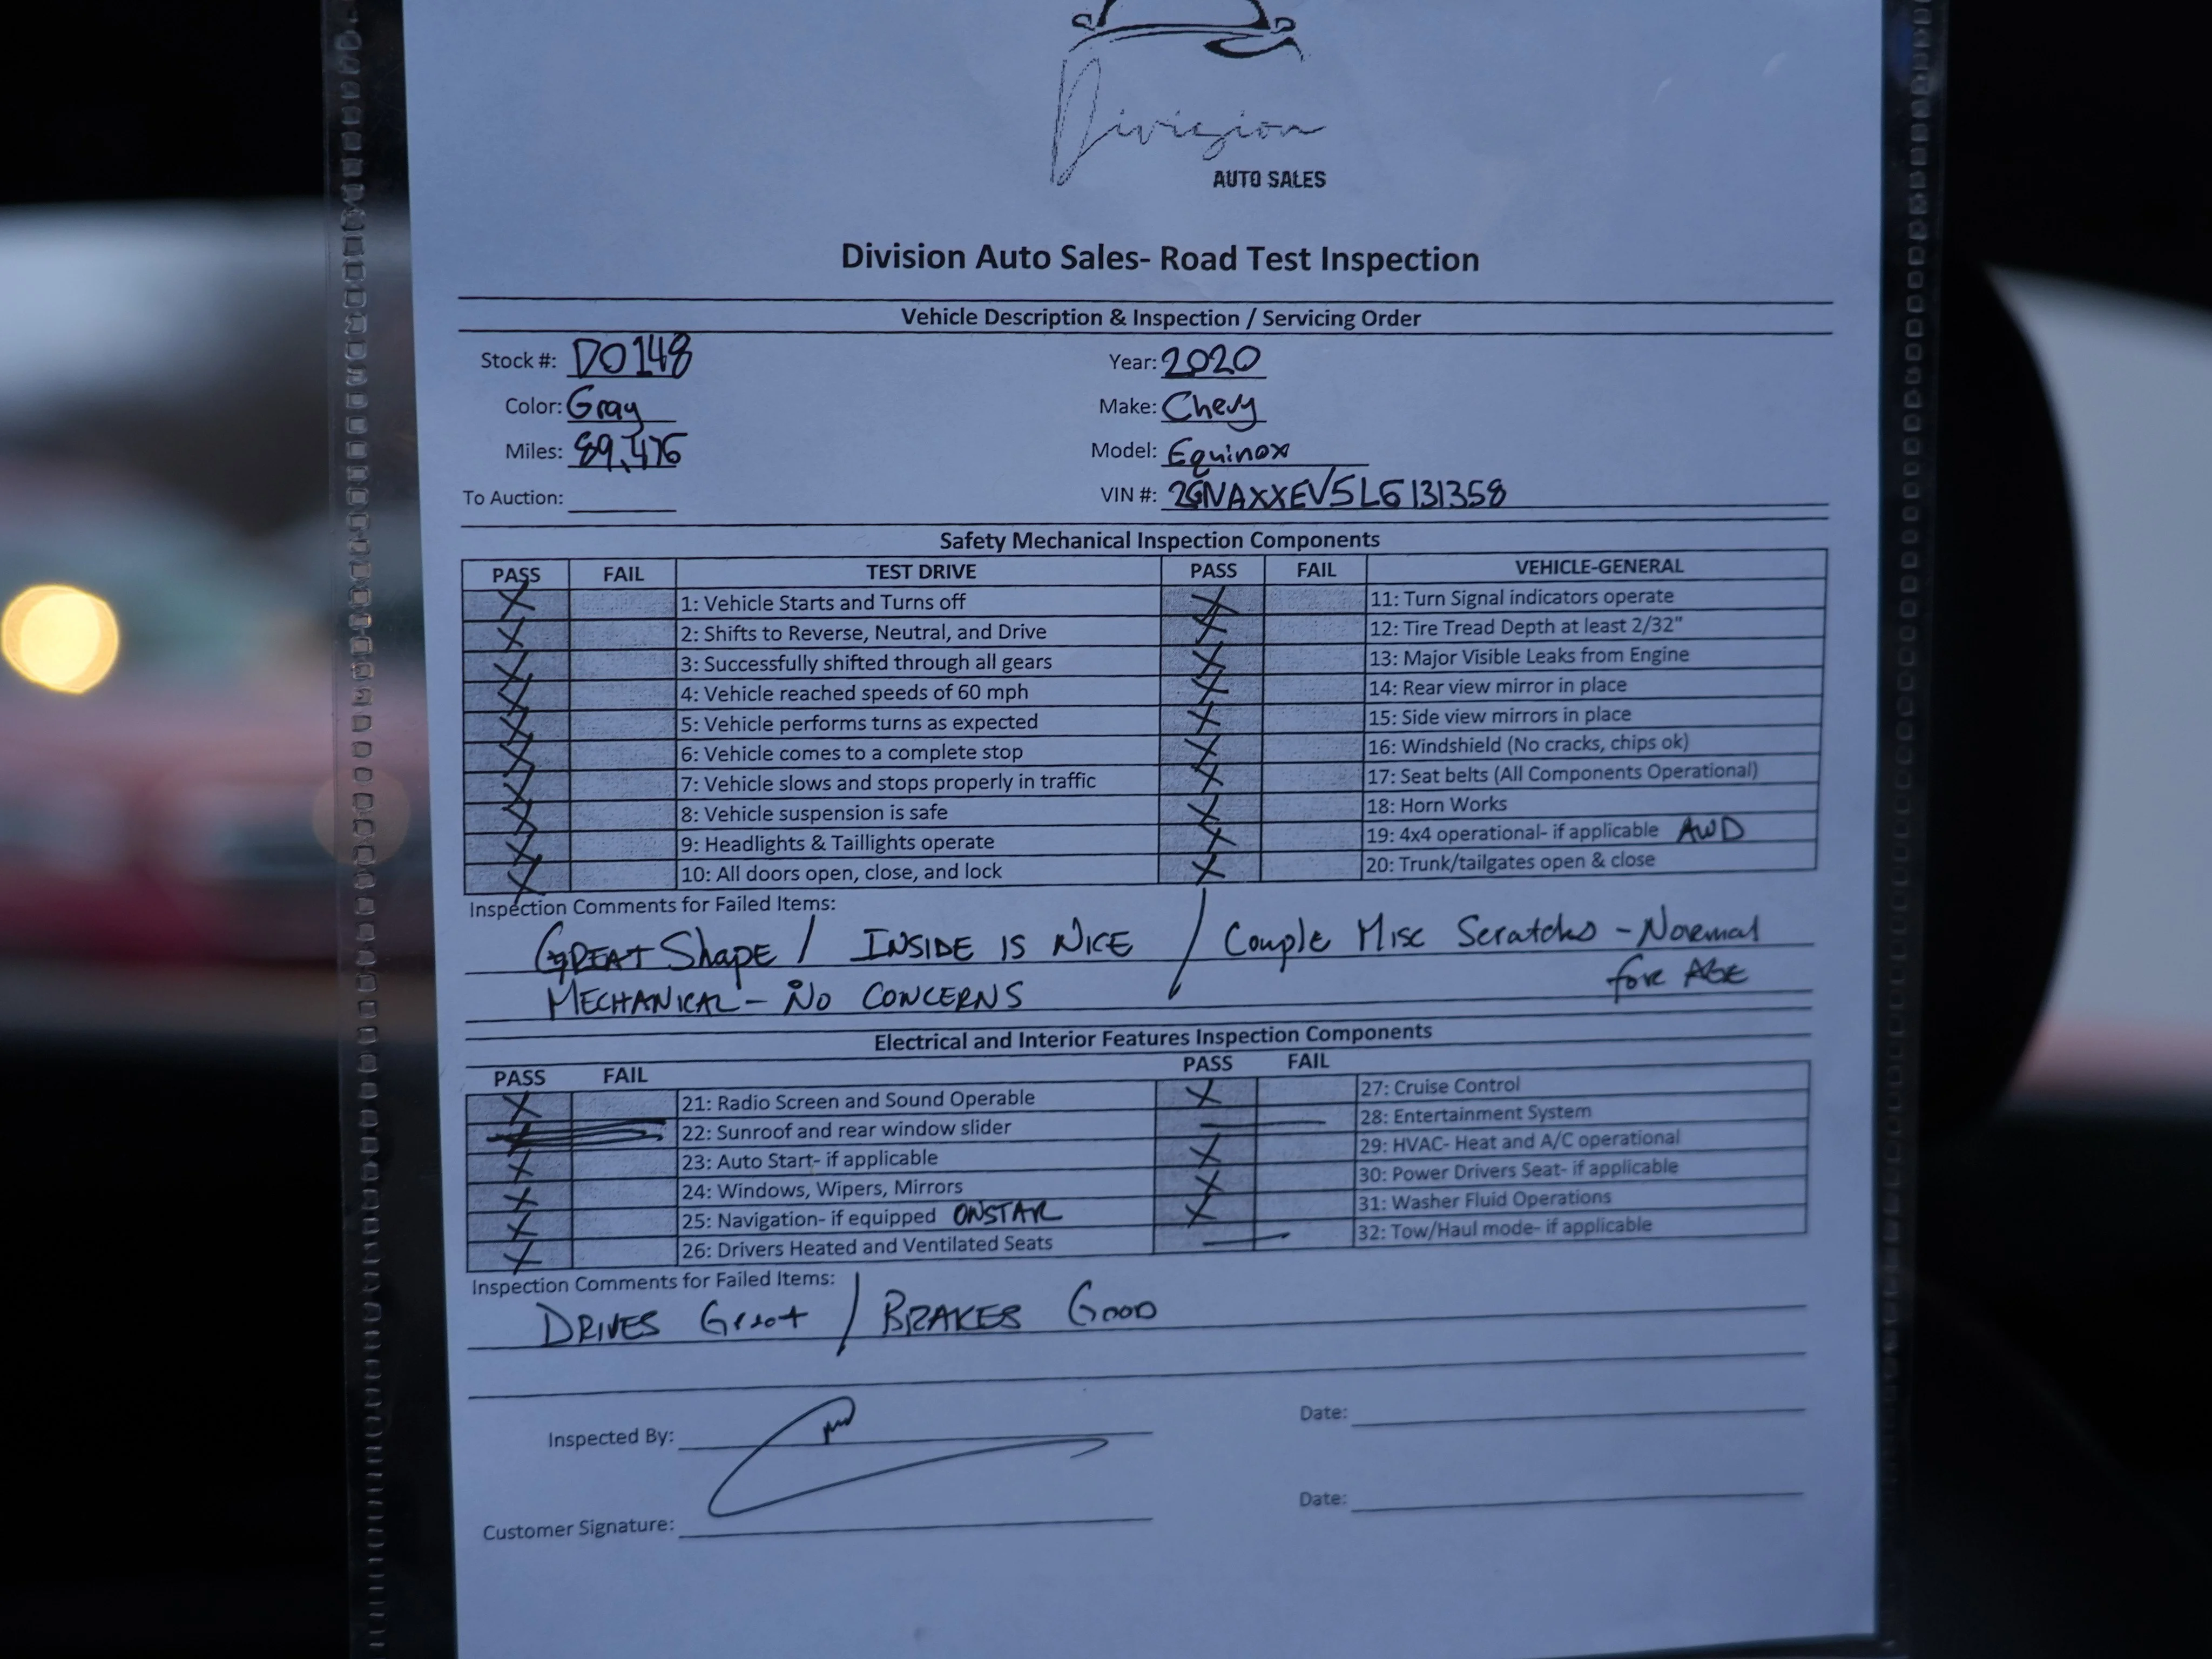 Division
AUTO SALES
Division Auto Sales- Road Test Inspection
Vehicle Description & Inspection / Servicing Order
Stock #: D0148 Year: 2020
Color: Gray Make: Chevy
Miles: 89,476 Model: Equinox
To Auction: VIN #: 2GNAXXEV5L6131358
Safety Mechanical Inspection Components
PASS FAIL TEST DRIVE PASS FAIL VEHICLE-GENERAL
X 1: Vehicle Starts and Turns off X 11: Turn Signal indicators operate
X 2: Shifts to Reverse, Neutral, and Drive X 12: Tire Tread Depth at least 2/32"
X 3: Successfully shifted through all gears X 13: Major Visible Leaks from Engine
X 4: Vehicle reached speeds of 60 mph X 14: Rear view mirror in place
X 5: Vehicle performs turns as expected X 15: Side view mirrors in place
X 6: Vehicle comes to a complete stop X 16: Windshield (No cracks, chips ok)
X 7: Vehicle slows and stops properly in traffic X 17: Seat belts (All Components Operational)
X 8: Vehicle suspension is safe X 18: Horn Works
X 9: Headlights & Taillights operate X 19: 4x4 operational- if applicable AWD
X 10: All doors open, close, and lock X 20: Trunk/tailgates open & close
Inspection Comments for Failed Items:
GREAT Shape / INSIDE IS NICE / Couple Misc Scratches - Normal
MECHANICAL - No CONCERNS for AGE
Electrical and Interior Features Inspection Components
PASS FAIL PASS FAIL
X 21: Radio Screen and Sound Operable X 27: Cruise Control
22: Sunroof and rear window slider — 28: Entertainment System
X 23: Auto Start- if applicable X 29: HVAC- Heat and A/C operational
X 24: Windows, Wipers, Mirrors X 30: Power Drivers Seat- if applicable
X 25: Navigation- if equipped ONSTAR X 31: Washer Fluid Operations
X 26: Drivers Heated and Ventilated Seats — 32: Tow/Haul mode- if applicable
Inspection Comments for Failed Items:
DRIVES Great / BRAKES GOOD
Inspected By: Date:
Customer Signature: Date: